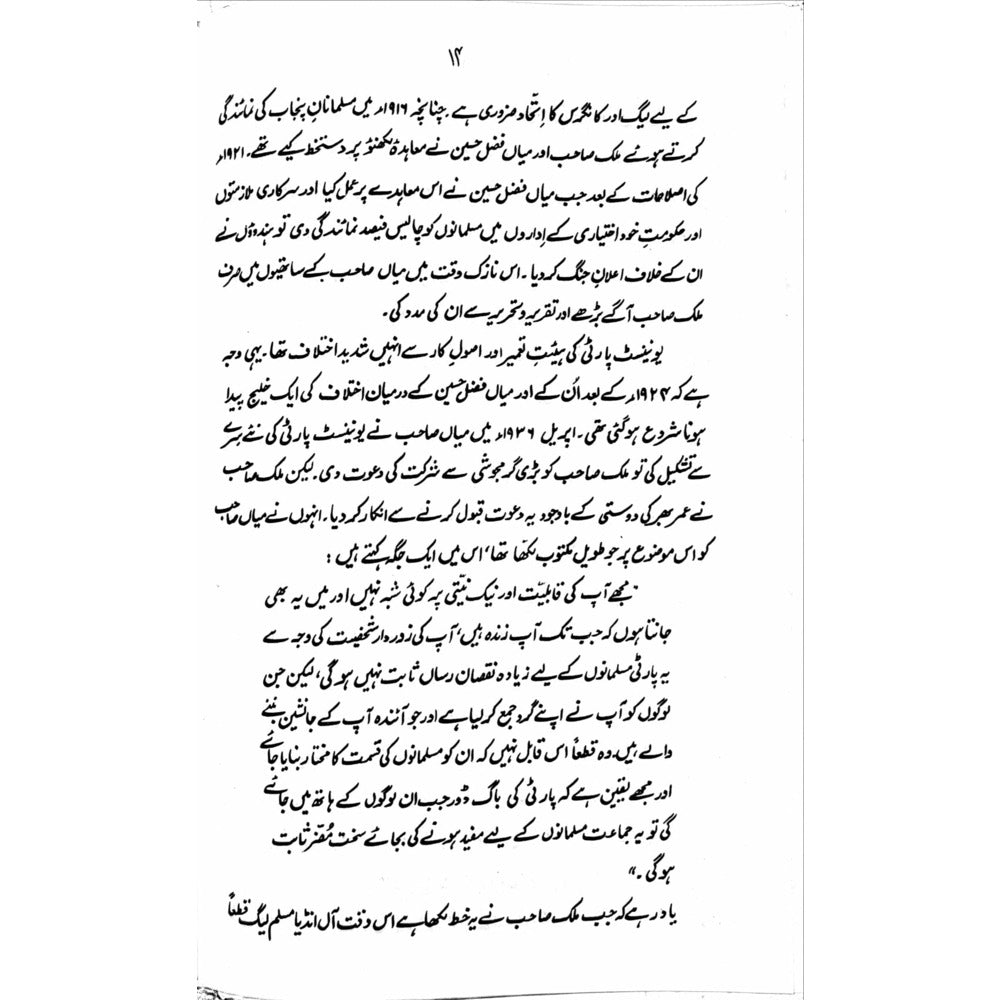 ۱۴
کے لیے لیگ اور کانگرس کا اتّحاد ضروری ہے۔ چنانچہ ۱۹۱۶ء میں مسلمانانِ پنجاب کی نمائندگی
کرتے ہوئے ملک صاحب اور میاں فضل حسین نے معاہدۂ لکھنؤ پر دستخط کیے تھے۔ ۱۹۲۱ء
کی اصلاحات کے بعد جب میاں فضل حسین نے اس معاہدے پر عمل کیا اور سرکاری ملازمتوں
اور حکومتِ خود اختیاری کے اِداروں میں مسلمانوں کو چالیس فیصد نمائندگی دی تو ہندوؤں نے
ان کے خلاف اعلانِ جنگ کر دیا۔ اس نازک وقت میں میاں صاحب کے ساتھیوں میں صرف
ملک صاحب آگے بڑھے اور تقریر و تحریر سے ان کی مدد کی۔
یونینسٹ پارٹی کی ہیئتِ تعمیر اور اصولِ کار سے انہیں شدید اختلاف تھا۔ یہی وجہ
ہے کہ ۱۹۲۴ء کے بعد اُن کے اور میاں فضل حسین کے درمیان اختلاف کی ایک خلیج پیدا
ہونا شروع ہو گئی تھی۔ اپریل ۱۹۳۶ء میں میاں صاحب نے یونینسٹ پارٹی کی نئے سرے
سے تشکیل کی تو ملک صاحب کو بڑی گرمجوشی سے شرکت کی دعوت دی۔ لیکن ملک صاحب
نے عمر بھر کی دوستی کے باوجود یہ دعوت قبول کرنے سے انکار کر دیا۔ انہوں نے میاں صاحب
کو اس موضوع پر جو طویل مکتوب لکھا تھا، اس میں ایک جگہ کہتے ہیں :
"مجھے آپ کی قابلیّت اور نیک نیّتی پر کوئی شبہ نہیں اور میں یہ بھی
جانتا ہوں کہ جب تک آپ زندہ ہیں، آپ کی زور دار شخصیت کی وجہ سے
یہ پارٹی مسلمانوں کے لیے زیادہ نقصان رساں ثابت نہیں ہو گی، لیکن جن
لوگوں کو آپ نے اپنے گرد جمع کر لیا ہے اور جو آئندہ آپ کے جانشین بننے
والے ہیں۔ وہ قطعاً اس قابل نہیں کہ ان کو مسلمانوں کی قسمت کا مختار بنایا جائے
اور مجھے یقین ہے کہ پارٹی کی باگ ڈور جب ان لوگوں کے ہاتھ میں جائے
گی تو یہ جماعت مسلمانوں کے لیے مفید ہونے کی بجائے سخت مُضر ثابت
ہو گی۔"
یاد رہے کہ جب ملک صاحب نے یہ خط لکھا ہے اس وقت آل انڈیا مسلم لیگ قطعاً